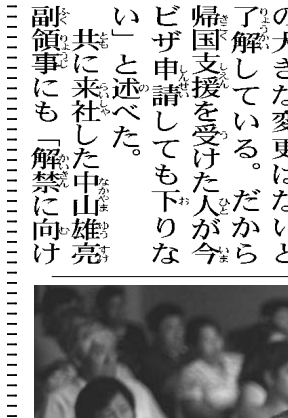 の大きな変更はないと
了解している。だから
帰国支援を受けた人が今
ビザ申請しても下りな
い」と述べた。
共に来社した中山雄亮
副領事にも「解禁に向け